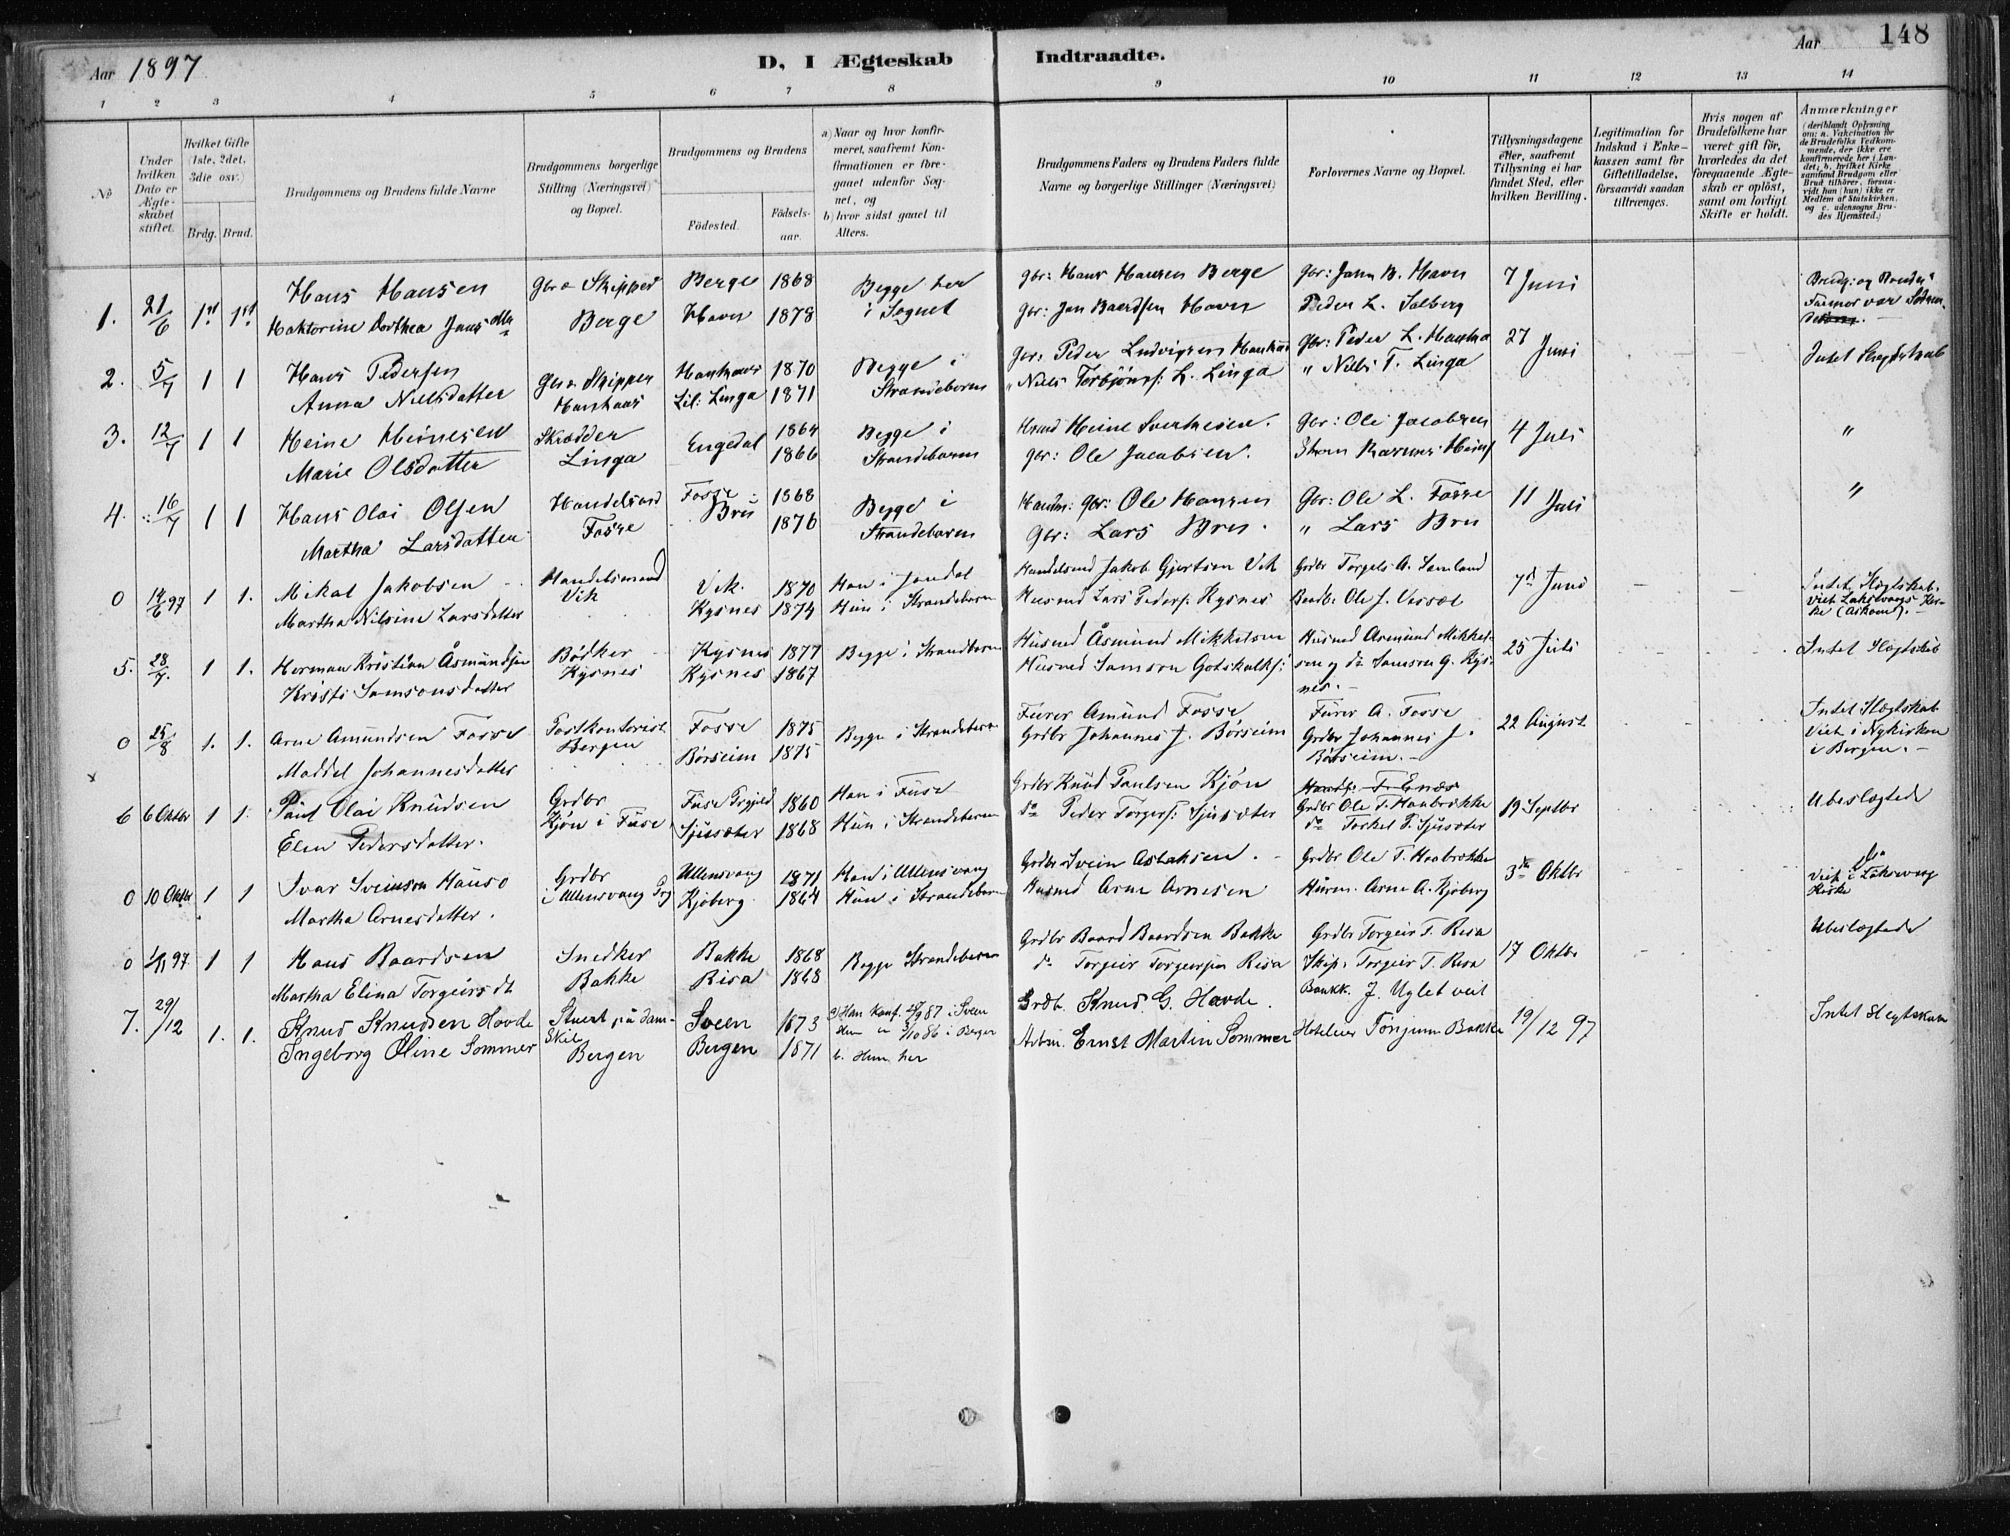 Aar 1897
D, I Ægteskab Indtraadte.
Aar 148
1 2 3 4 5 6 7 8 9 10 11 12 13 14
No
Under hvilken Dato er Ægteskabet stiftet.
Hvilket Gifte (1ste, 2det, 3die osv.)
Brdg. Brud.
Brudgommens og Brudens fulde Navne
Brudgommens borgerlige Stilling (Næringsvei) og Bopæl.
Brudgommens og Brudens
Fødested.
Fødsels-aar.
a) Naar og hvor konfirmeret, saafremt Konfirmationen er foregaaet udenfor Sognet, og
b) hvor sidst gaaet til Alters.
Brudgommens Faders og Brudens Faders fulde Navne og borgerlige Stillinger (Næringsvei)
Forlovernes Navne og Bopæl.
Tillysningsdagene eller, saafremt Tillysning ei har fundet Sted, efter hvilken Bevilling.
Legitimation for Indskud i Enkekassen samt for Giftetilladelse, forsaavidt saadan tiltrænges.
Hvis nogen af Brudefolkene har været gift før, hvorledes da det foregaaende Ægteskab er opløst, samt om lovligt Skifte er holdt.
Anmærkninger (deriblandt Oplysning om: a. Vakcination for de Brudefolks Vedkommende, der ikke ere konfirmerede her i Landet; b. hvilket Kirkesamfund Brudgom eller Brud tilhører, forsaavidt han (hun) ikke er Medlem af Statskirken, og c. udensogns Brudes Hjemsted.)
1. 21/6 1st 1st Hans Hansen
Haktorine Dorthea Jans dtr
Gbr o Skipper
Berge
Berge 1868
Havn 1878
Begge her
i Sognet
gbr: Hans Hansen Berge
gbr: Jan Baardsen Havn
gbr: Jann B. Havn
Peder L. Solberg
7 Juni
Brudg: og Brudens
Farmor var
2. 5/7 1 1 Hans Pedersen
Anna Nielsdatter
Gbr o Skipper
Haukaas
Haukaas 1870
Lil: Linga 1871
Begge i
Strandebarm
gbr: Peder Ludvigsen Haukaas
" Niels Torbjörns: L. Linga
gbr: Peder L. Haukaa
" Niels T. Linga
27 Juni
Intet Slægtskab
3. 12/7 1 1 Heine Heinesen
Marie Olsdatter
Skrædder
Linga
Engedal 1864
1866
Begge i
Strandebarm
Husmd Heine
gbr: Ole Jacobsen.
gbr: Ole Jacobsen
Rasmus Heines
4 Juli
"
4. 16/7 1 1 Hans Olai Olsen
Martha Larsdatter
Handelsmd
Fosse
Fosse 1868
Bru 1876
Begge i
Strandebarm
Handm: gbr: Ole Hansen
gbr: Lars Bru.
Gbr: Ole L. Fosse
" Lars Bru
11 Juli
"
0 14/6 97 1 1. Mikal Jakobsen
Martha Nilsine Larsdatter
Handelsmand
Vik
Vik. 1870
Kysnes 1874
Han i Jondal
Hun i Strandebarm
Handelsmd Jakob Gjertsen Vik
Husmd Lars Peders: Kysnes
Grdbr Torgels A. Samland
Ole J.
7d Juni
Intet Slægtskab.
Viet Laksevaags Kirke (Askøen).
5. 28/7. 1 1. Herman Kristian Åsmundsen
Kristi Samsonsdatter
Bødker
Kysnes
Kysnes 1877
Kysnes 1867
Begge i Strandbarm
Husmd Åsmund Mikkelsen
Husmd Samson Gotskalks:
Husmd Asmund Mikkel-
sen og do Samson G. Kys-
nes.
25 Juli
Intet Slægtskab
0 25/8 1. 1. Arne Amundsen Fosse
Maddel Johannesdatter
Postkontorist
Bergen
Fosse 1875
Børseim 1875
Begge i Strandebarm
Furer Amund Fosse
Grdbr Johannes J. Børseim
Furer A. Fosse
Grdbr Johannes J.
Børseim.
22 August
Intet Slægtskab
Viet i Nykirken
i Bergen.
6 6 Oktbr 1 1. Paul Olai Knudsen
Elen Pedersdatter.
Grdbr
Kjøn i Fuse
Fuse Prgjeld 1860
Sjusæter 1868
Han i Fuse
Hun i Strandebarm
Grdbr Knud Paulsen Kjøn
do Peder Torgers: Sjusæter
Grdbr Ole T. Haabrække
do Torkel P. Sjusæter
19 Septbr
Ubeslægtede
0 10 Oktbr 1 1 Ivar Sveinson Hauso
Martha Arnesdatter.
Grdbr
i Ullensvang Prg
Ullensvang 1871
Kjøberg 1864
Han i Ullensvang
Hun i Strandebarm
Grdbr Svein Aslaksen.
Husmd Arne Arnesen
Grdbr Ole T. Haabrække
Husm. Arne A. Kjøberg
3de Oktbr
do
Viet i Laksevaag
Kirke
0 97 1 1 Hans Baardsen
Martha Elina Torgeirs dt
Snedker
Bakke
Bakke 1868
Risa 1868
Begge Strandebarm
Grdbr Baard Baardsen Bakke
do Torgeir Torgeirsen Risa
Grdbr Torgeir T. Risa
Skip: Torgeir T. Risa
17 Oktbr
Ubeslægtede
7. 29/12 1. 1. Knud Knudsen Hovde
Ingeborg Oline Sommer
Stuert på Dam-
Skib
Bergen
Sveen 1873
Bergen 1871
a) Han konf. 87 i Sveen
Hun 86 i Bergen
b. Hun her
Grdb. Knud G. Hovde.
Arbm. Ernst Martin Sommer
J. Ugletveit
Hoteleier Tönjum Bakke
19/12 97
Intet Slegtskab